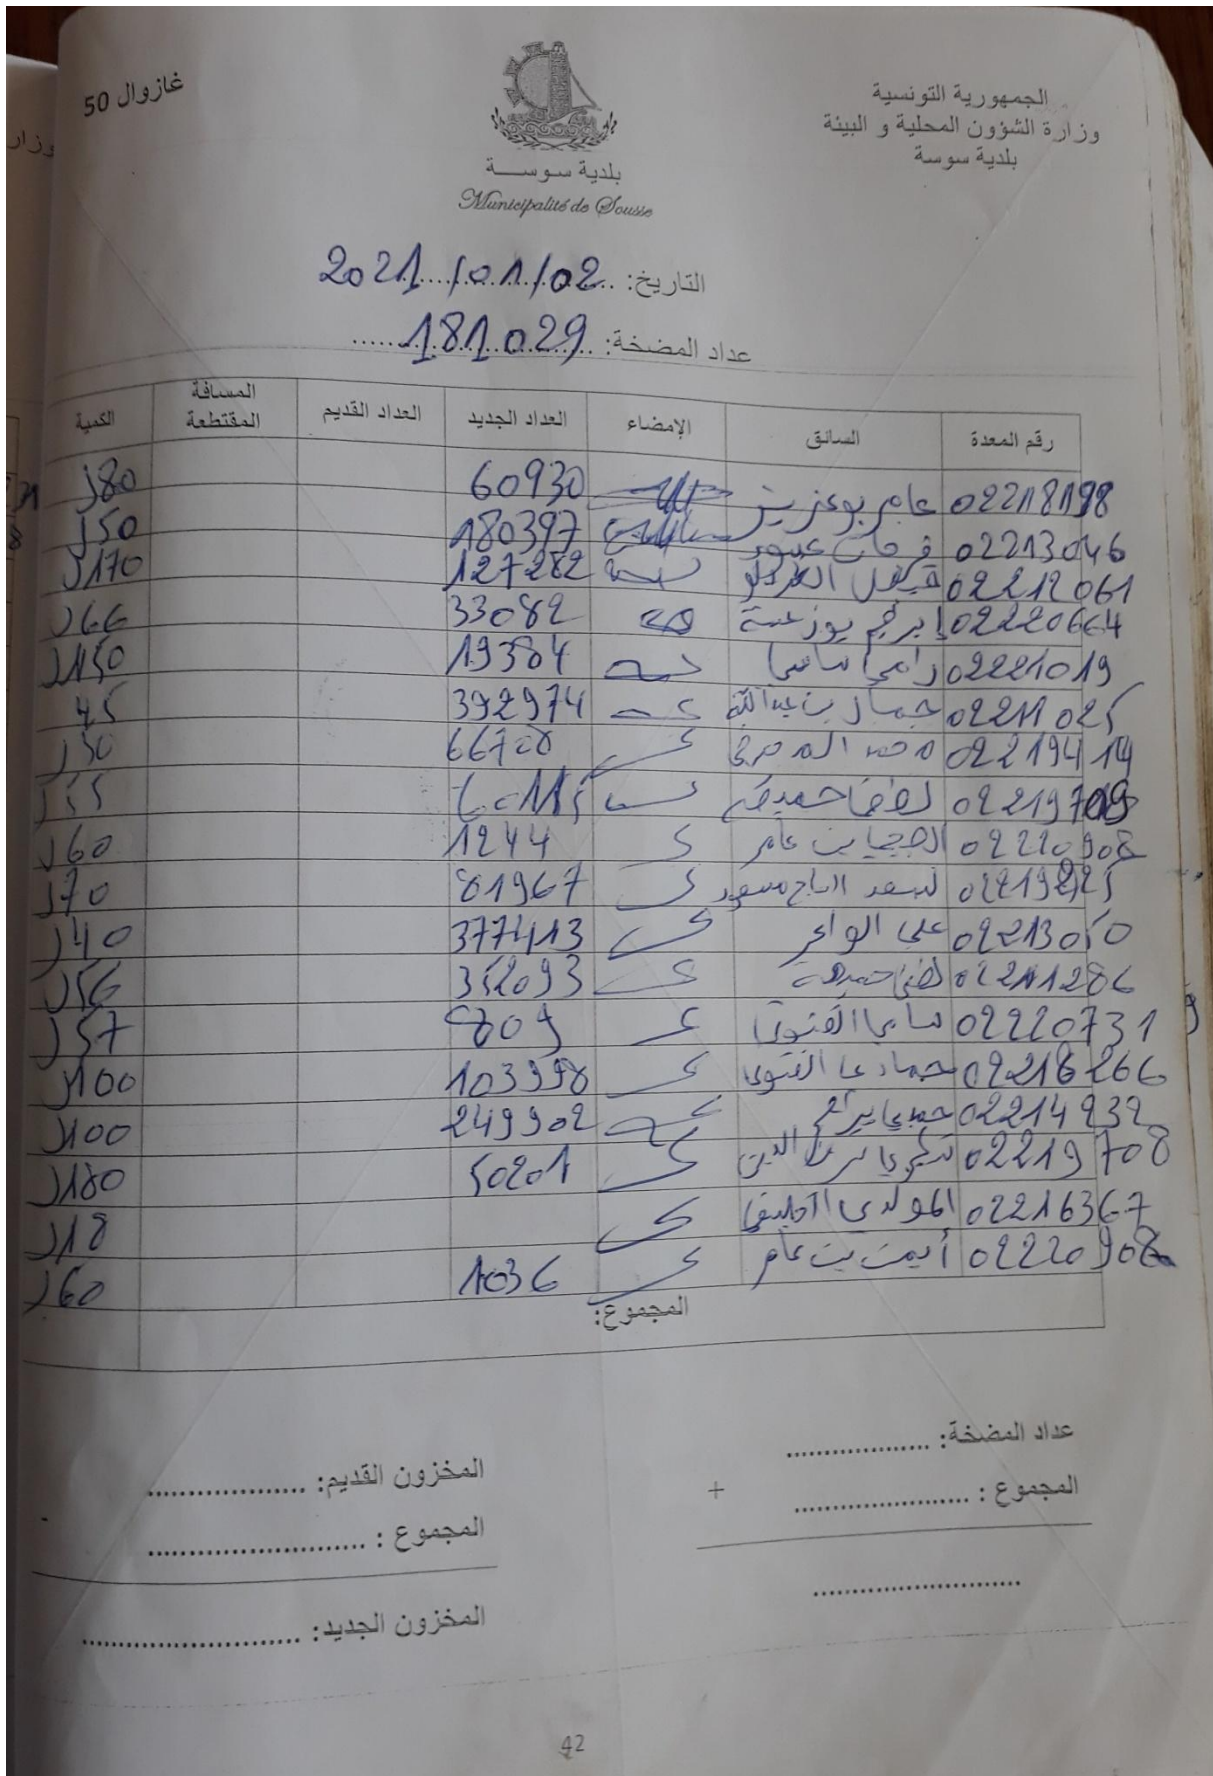 الجمهورية التونسية
وزارة الشؤون المحلية و البيئة
بلدية سوسة
بلدية سوســـة
Municipalité de Sousse
غازوال 50
التاريخ: 2021/01/02
عداد المضخة: 181029
رقم المعدة السائق الإمضاء العداد الجديد العداد القديم المسافة المقتطعة الكمية
02218198 عامر بوعزيز 60930 80ل
02213046 فرحات 180397 50ل
02212061 فيصل 127282 170ل
02220664 33082 66ل
02221019 رامي ساسي 19384 150ل
02211025 جمال بن عبد الله 392974 45
02219414 محمد ل
02219709 لطفي حميدة 55ل
02220908 بن عامر 1244 60ل
لسعد الحاج مسعود 81967 70ل
02213050 علي الواعر 377413 40ل
02211286 لطفي حميدة 352093 56ل
02220731 سامي الفتوي 809 57ل
02218266 حمادي الفتوي 103998 100ل
02214932 249902 100ل
02219708 الدين 50201 180ل
02216367 المولدي 18ل
02220908 أيمن بن عامر 1036 60ل
المجموع:
عداد المضخة: ...................
المجموع : ...................
+
المخزون القديم: ...................
المجموع : ...................
المخزون الجديد: ...................
42